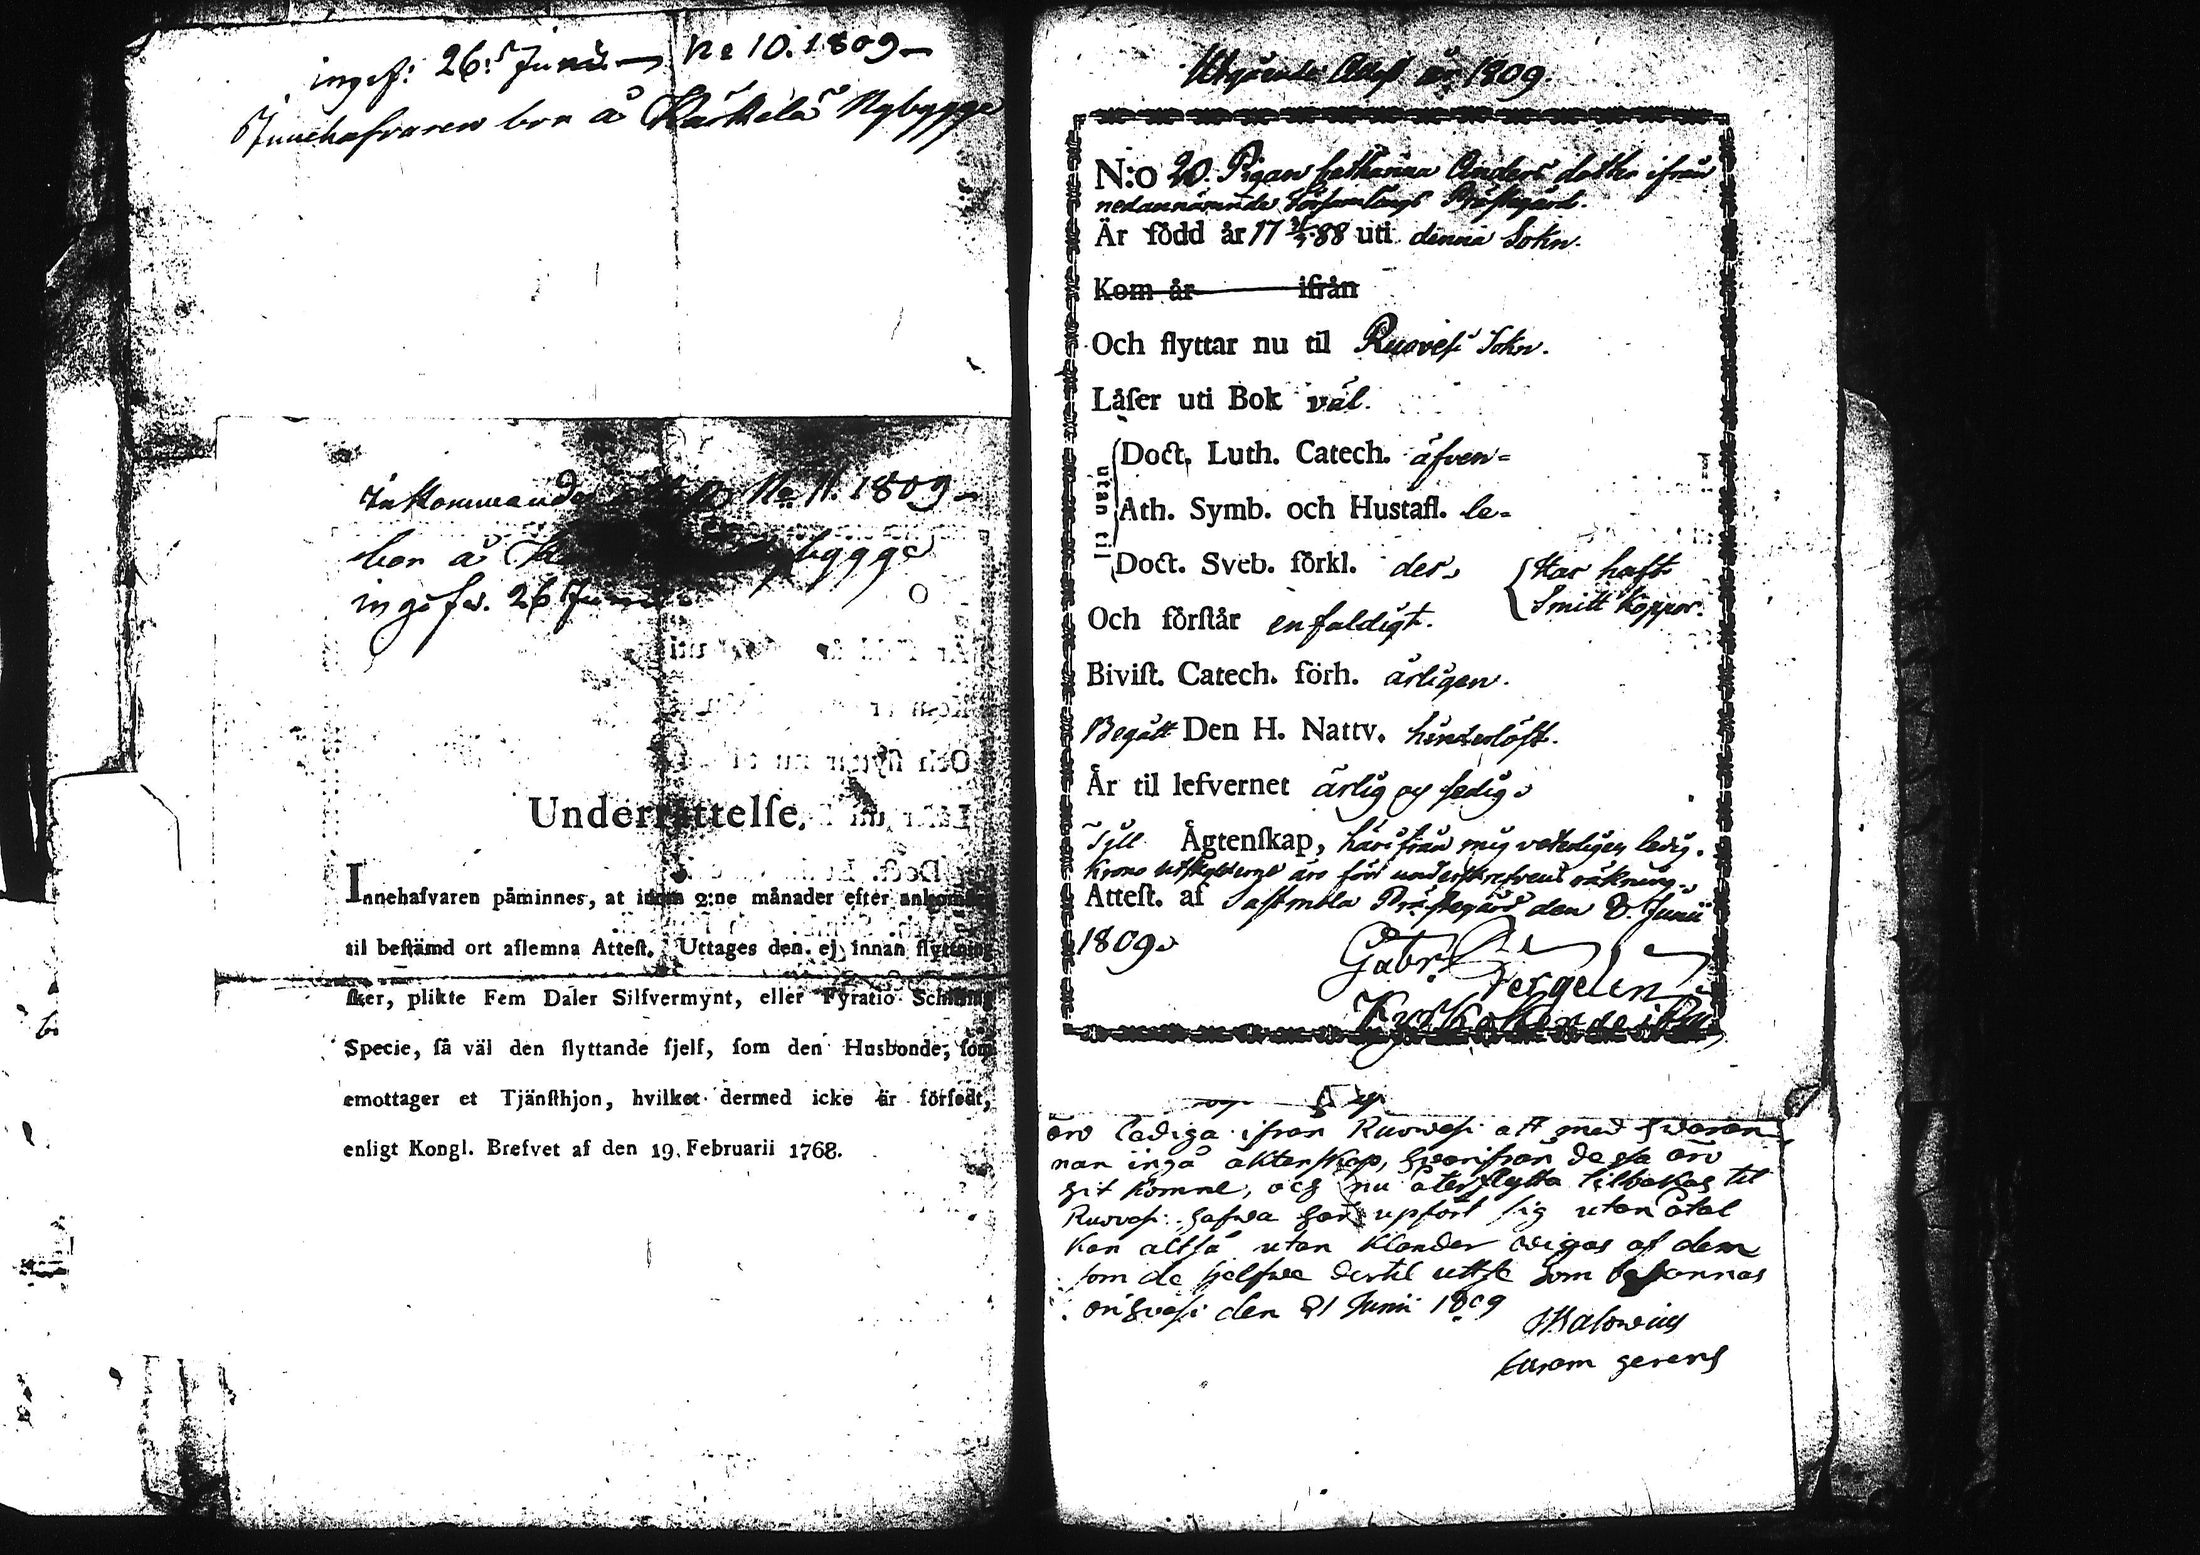 ingif: 26 Junii — No 10. 1809 —
Innehafvaren bor å Nybygge
Inkommande No 11. 1809 —
bor å bygge
ingifv. 26 Junii
Underrättelſe.
Innehafvaren påminnes, at inom 2:ne månader efter ankomſten
til beſtämd ort aflemna Atteſt. Uttages den ej innan flyttning
ſker, plikte Fem Daler Silfvermynt, eller Fyratio Schilling
Specie, ſå väl den flyttande ſjelf, ſom den Husbonde, ſom
emottager et Tjänſthjon, hvilket dermed icke är förſedt,
enligt Kongl. Brefvet af den 19. Februarii 1768.
Utgående Attest år 1809.
N:o 20. Pigan Catharina Anders dotter ifrån
nedannämnde Församlings Prästegård.
Är född år 17 88 uti denna Sokn.
Kom år ifrån
Och flyttar nu til Ruovesi Sokn.
Låſer uti Bok väl.
utan til
Doct. Luth. Catech. äfven=
Ath. Symb. och Hustafl. le=
Doct. Sveb. förkl. des.
Har haft
Smitt koppor.
Och förſtår enfaldigt.
Biviſt. Catech. förh. årligen.
Begått Den H. Nattv. hinderlöst.
Är til lefvernet ärlig og sedig.
Till Ägtenſkap, härifrån mig veterligen ledig.
Krono utskylderne äro förr underskrefvens räkning.
Atteſt. af Prästegård den 8. Junii
1809.
Gabr.
Kyrkoherde
äro ladiga ifrån Ruovesi att med hvaran
nan ingå äktenskap, hvarifrån dessa äro
hit komne, och nu återflytta tilbakas til
Ruovesi hafva här upfört sig utan åtal
kan altså utan klander vigas af dem
som de sielfve dertil uttse som bekännas
den 21 Junii 1809
gerens